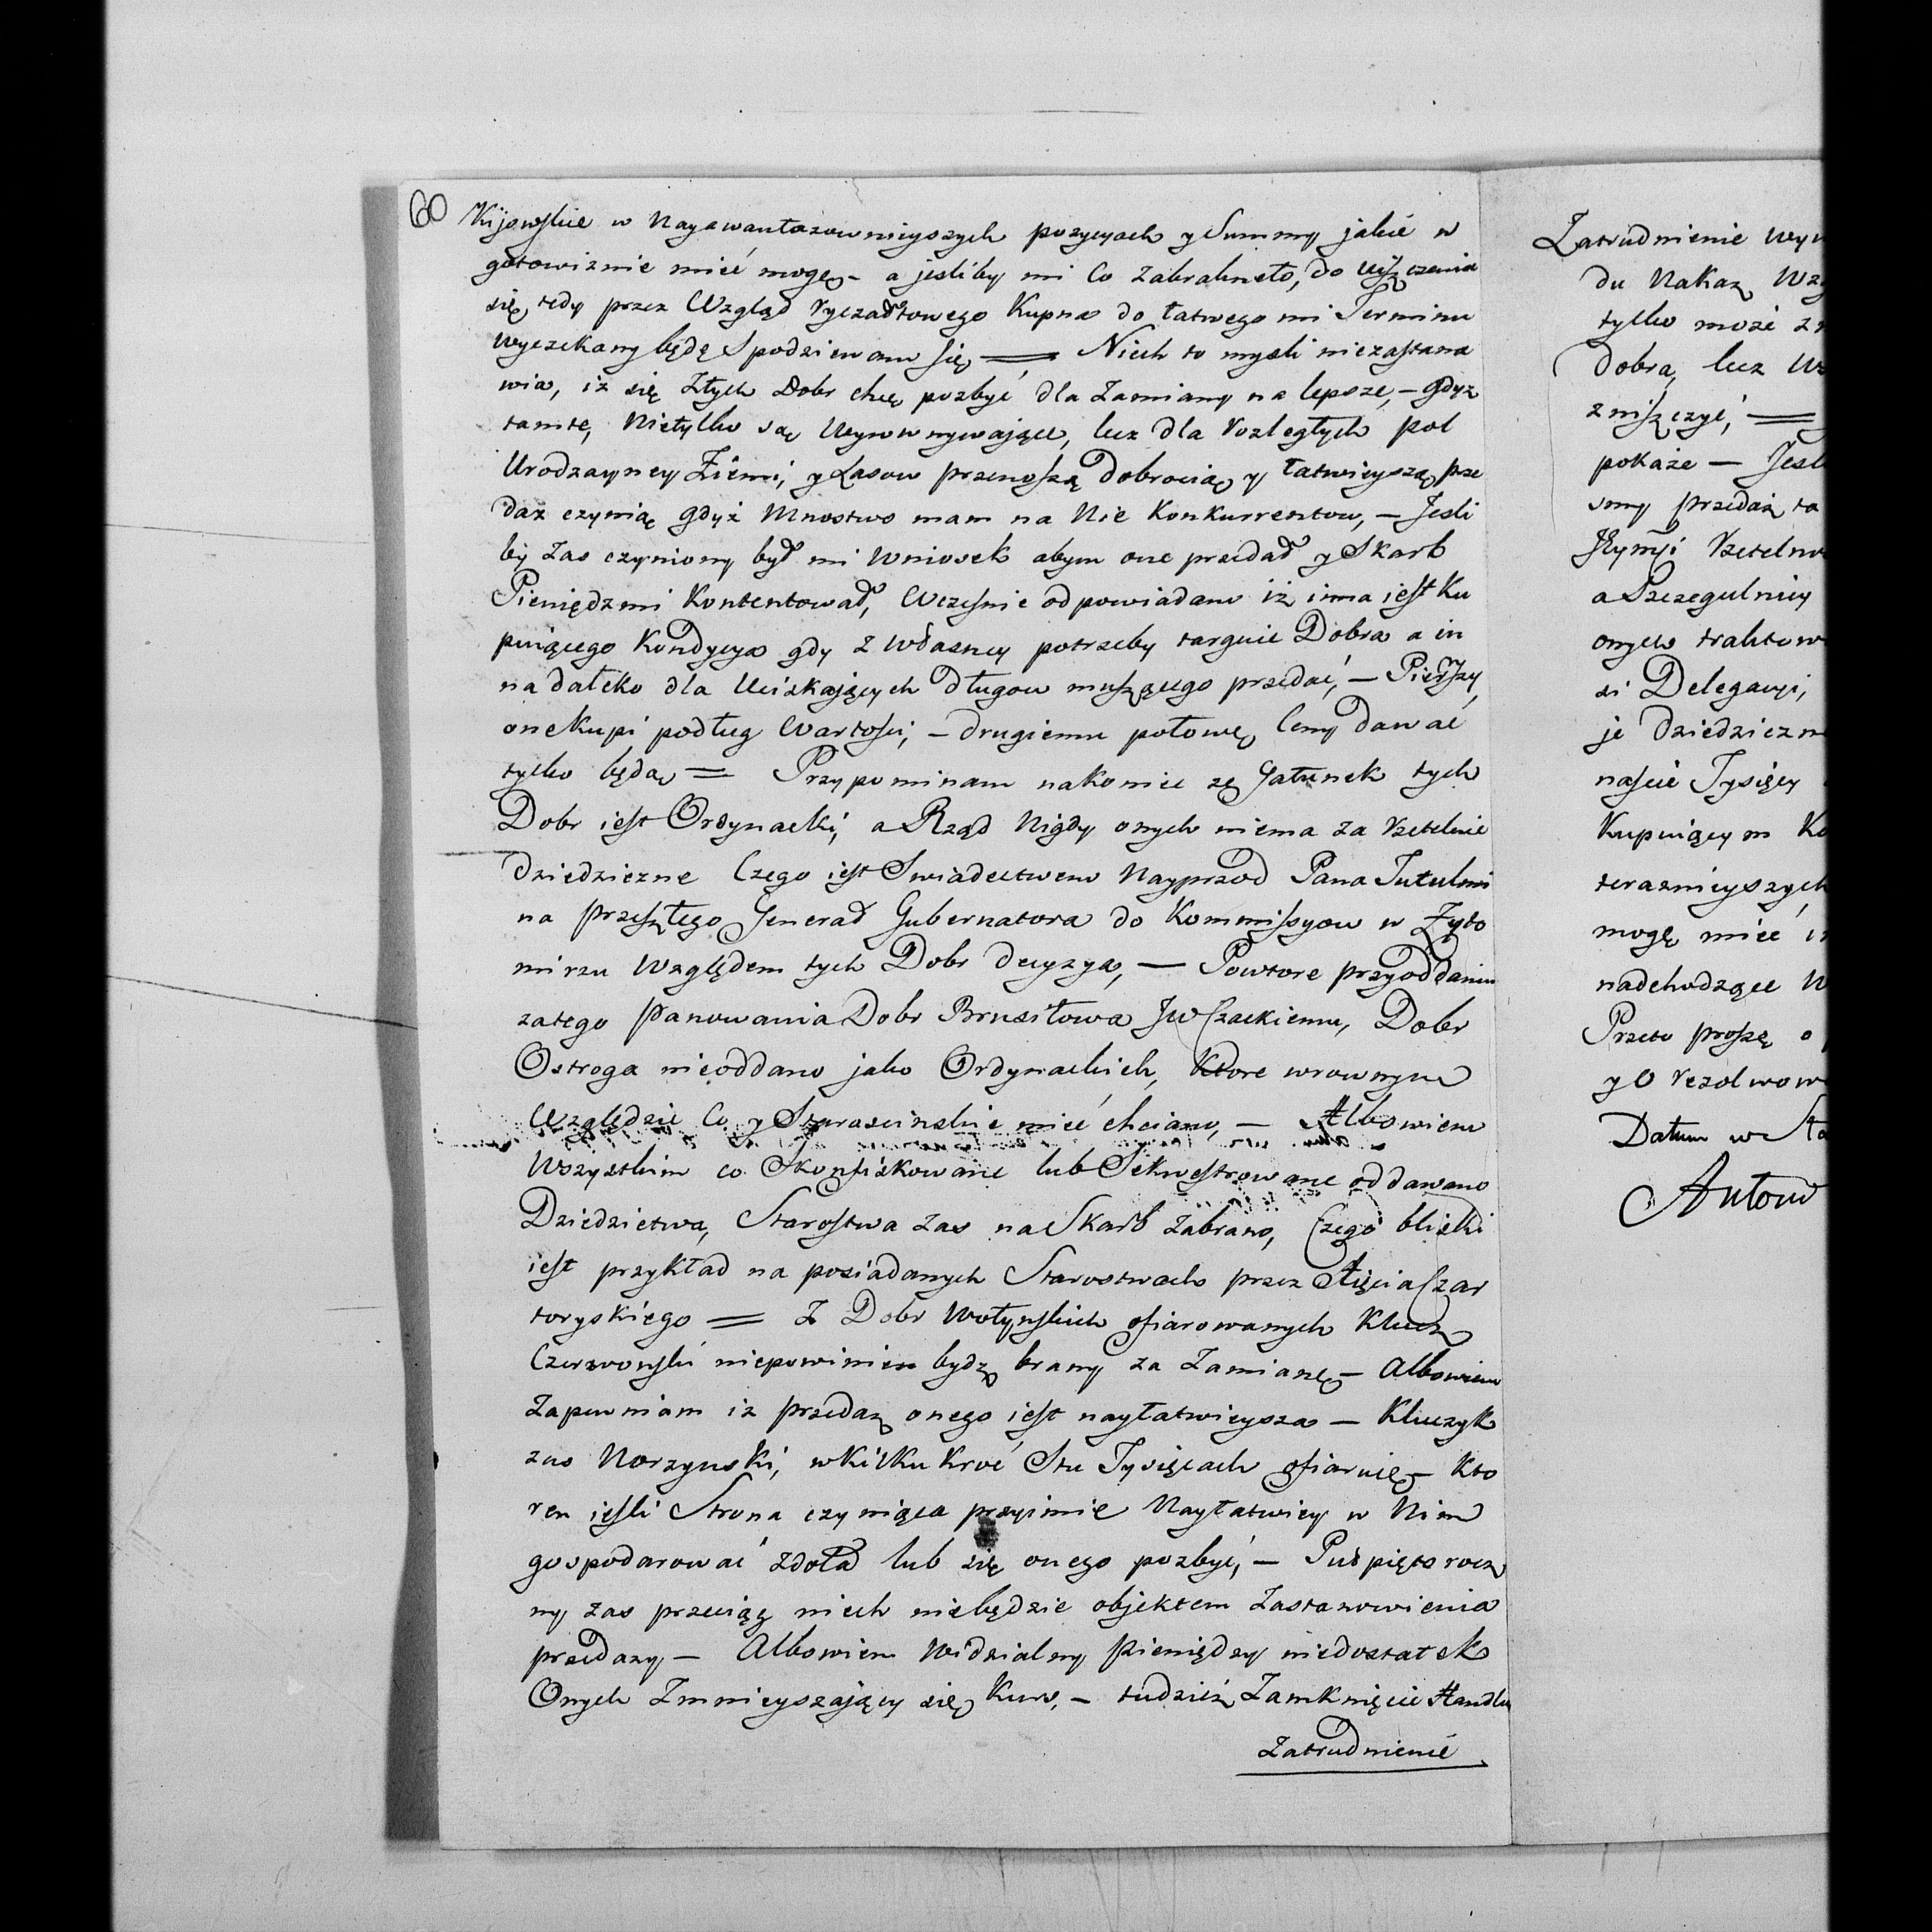 60
Kijowskie w Nayawantazownieyszych pozycyach y Summy jakie w
gotowiznie mieć mogę – a jesliby mi Co zabrakneło, do uiszczenia
się, tedy przez Wzgląd ryczałtowego Kupna do łatwego mi Terminu
wyczekany będę Spodziewam się = Niech to mysli niezastana
wia, iz się Złych Dobr chcę pozbyć dla Zamiany na lepsze, – gdyz
tamte, Nietylko są Wyrownywaiące, lecz dla rozległych pol
Urodzayney Ziemi, y Lasow przenoszą Dobrocią y łatwieyszą prze
daz czynią gdyż Mnostwo mam na Nie Konkurrentow, – Jesli
by Zas czyniony był mi Wniosek abym one przedał y Skarb
Pieniędzmi Kontentował, Wczesnie odpowiadam iż inna iest Ku
puiącego Kondycya gdy z własney potrzeby targuie Dobra a in
na daleko dla Uciskających długow muszącego przedać, – Pierszy
one Kupi podług Wartosci, – drugiemu połowę Ceny dawać
tylko będą = Przypominam nakoniec zę Gatunek tych
Dobr iest Ordynacki, a Rząd Nigdy onych niema za rzetelnie
dziedziczne Czego iest Swiadectwem Nayprzod Pana Tutulmi
na przeszłego Generał Gubernatora do Kommissyow w Żyto
mirzu Względem tych Dobr decyzya, – Powtore przy oddaniu
zatego Panowania Dobr Brusiłowa JW Czackiemu, Dobr
Ostroga nieoddano jako Ordynackich, Ktore wrownym
Względzie Co y Staroscinskie mieć chciano, – Albowiem
Wszystkim co Skonfiskowane lub Sekwestrowane oddawano
Dziedzictwa, Starostwa zas na Skarb Zabrano, Czego bliski
iest przykład na posiadanych Starostwach przez Xięcia Czar
toryskiego = Z Dobr Wołynskich ofiarowanych Klucz
Czerwonski niepowinien bydz brany za Zamianę – Albowiem
Zapewniam iz przedaz onego iest nayłatwieysza – Kluczyk
zas Norzynski, w Kilku Kroć Stu Tysięcach ofiaruię – Kto
ren iesli Strona czyniąca przyimie Nayłatwiey w Nim
gospodarować zdoła lub się onego pozbyć, – Pułpiętarocz
ny zas przeciąg niech niebędzie objektem Zastanowienia
przedazy – Albowiem Widzialny Pieniędzy niedostatek
Onych Zmnieyszający się Kurs, – tudzież Zamknięcie Handlu
Zatrudnienie
Zatrudnienie
du Nakaz
tylko może
dobra, lecz
zniszczyć, =
pokaże –
smy przedaż ta
a Szczegulniey
onych
si Delegacyi,
je
nascie Tysięcy
Kupuiącym
teraznieyszych
mogę mieć
nadchodzące
Przeto proszę o
y O
Datum w